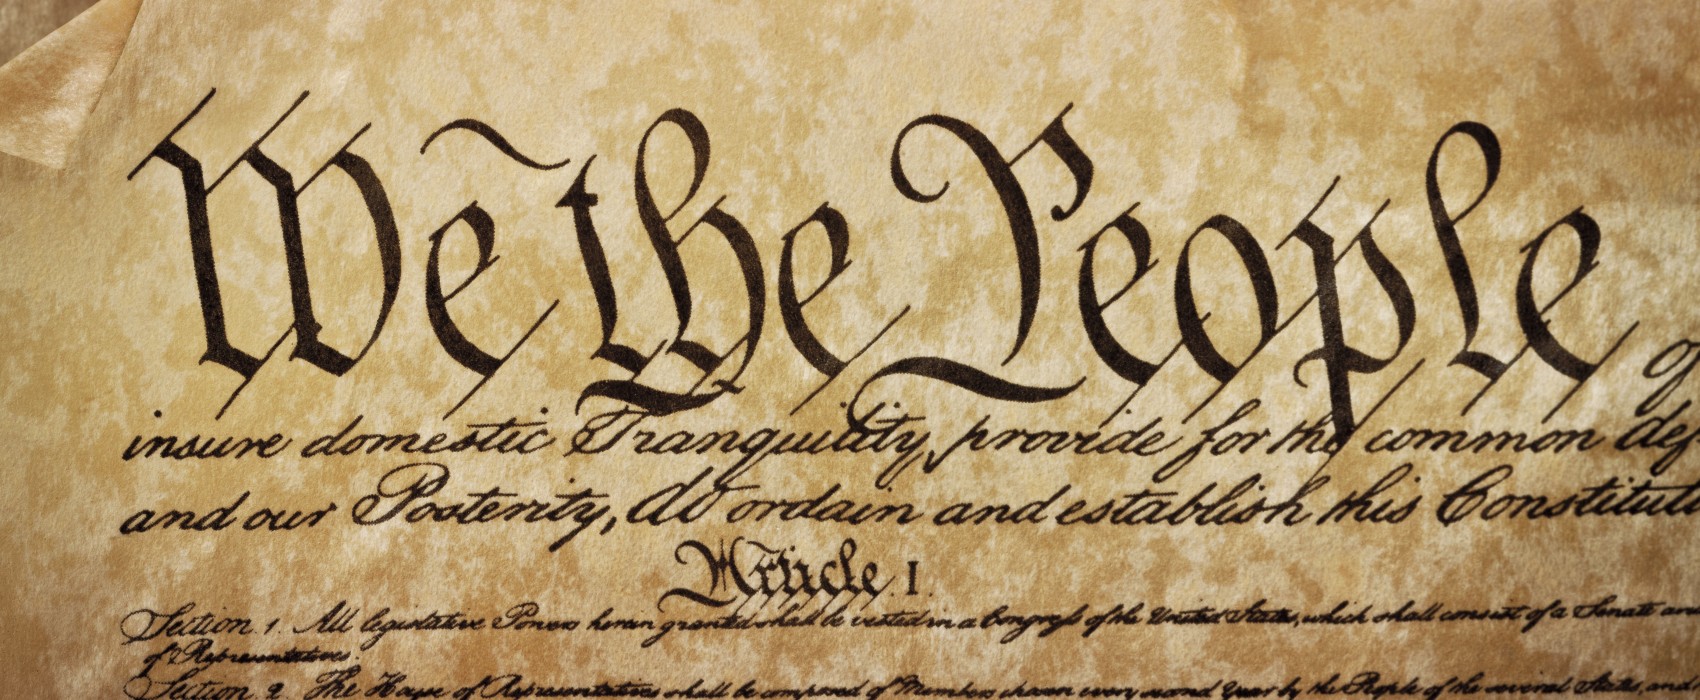 We the People of
insure domestic Tranquility, provide for the common def
and our Posterity, do ordain and establish this Constituti
Article. I.
Section. 1. All legislative Powers herein granted shall be vested in a Congress of the United States, which shall consist of a Senate an
of Representatives.
Section. 2. The House of Representatives shall be composed of Members chosen every second Year by the People of the several States, and